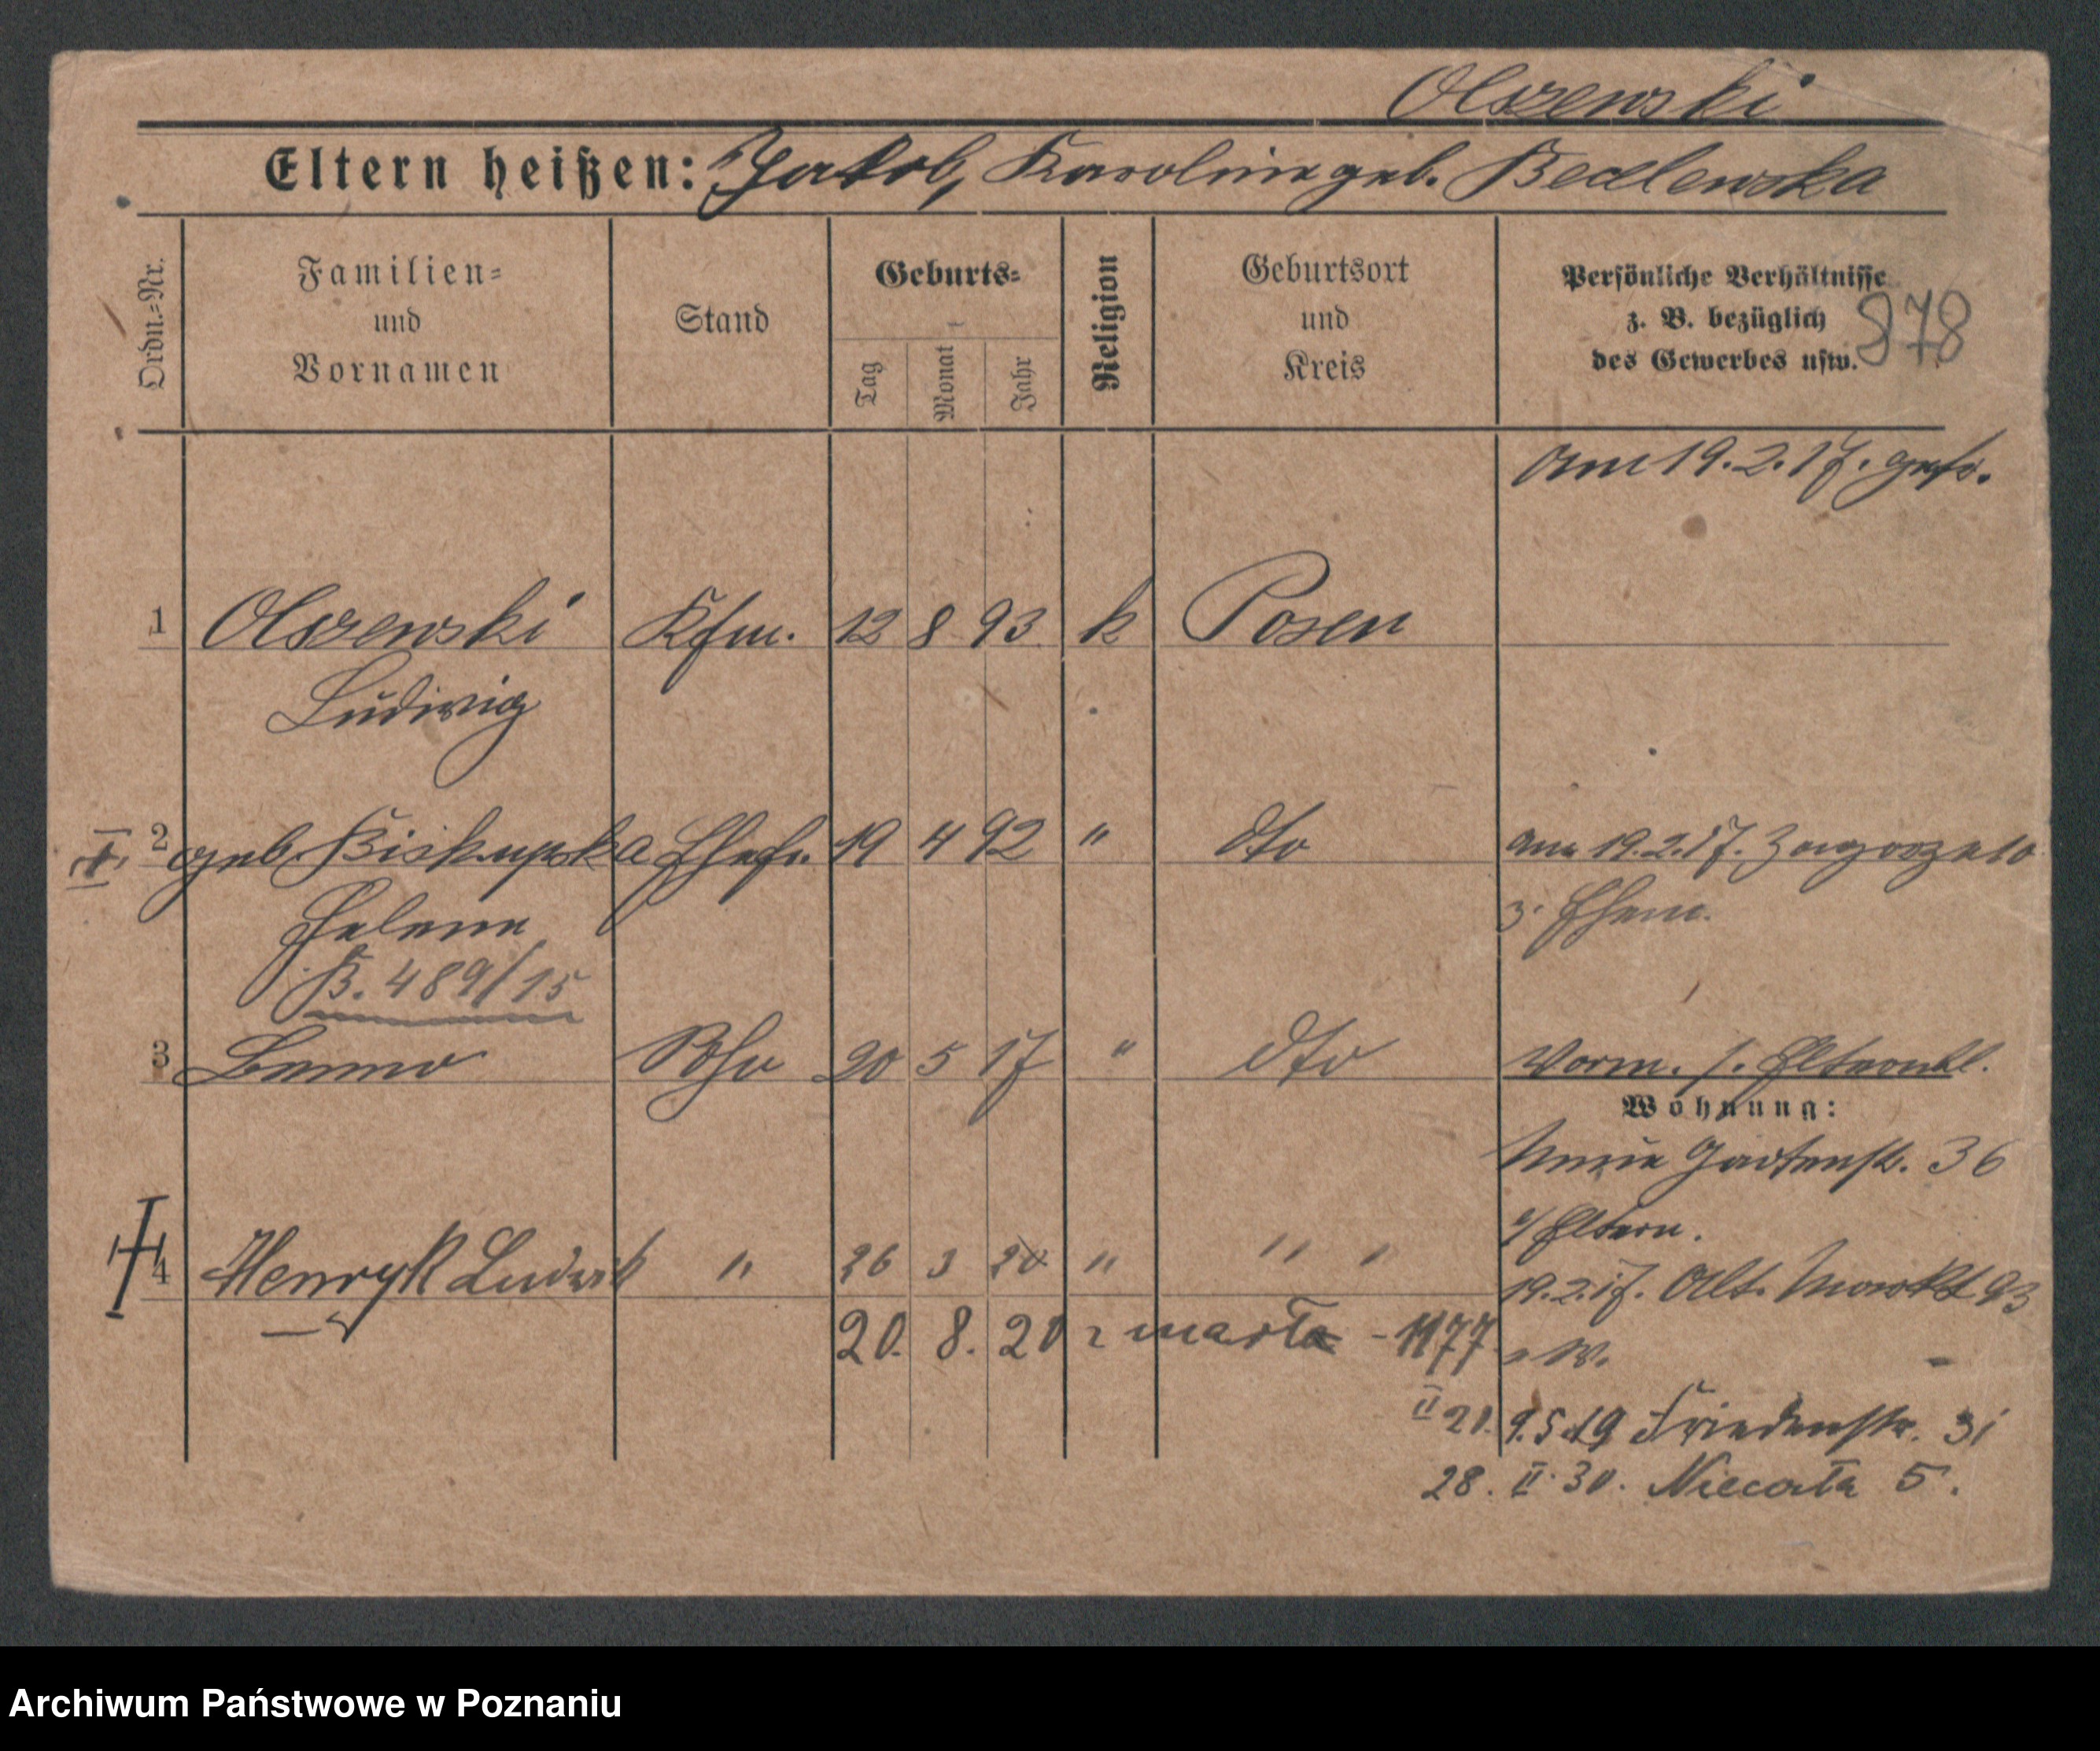 Olszewski
Eltern heißen: Jakob, Karoline geb. Bedlewska
Ordn.=Nr.
Familien=
und
Vornamen
Stand
Geburts=
Tag
Monat
Jahr
Religion
Geburtsort
und
Kreis
Persönliche Verhältnisse
z. B. bezüglich
des Gewerbes usw.
878
am 19.2.17. getr.
1 Olszewski Kfm. 12 8 93 k Posen
Ludwig
2 geb. Biskupska Ehefr. 19 4 92 " dto am 19.2.17.
Helene z. Ehem.
B. 489/15
3 Benno Sohn 20 5 17 " dto Vorm. s. Elternbl.
Wohnung:
Neue Gartenstr. 36
b/Eltern.
4 Henryk Ludwik " 26 3 20 " " " 19.2.17. Alt. Markt 93
20. 8. 20 zmarła - 1177
II 21. 9.5.19 Friedenstr. 31
28. II. 30. Niecała 5.
Archiwum Państwowe w Poznaniu